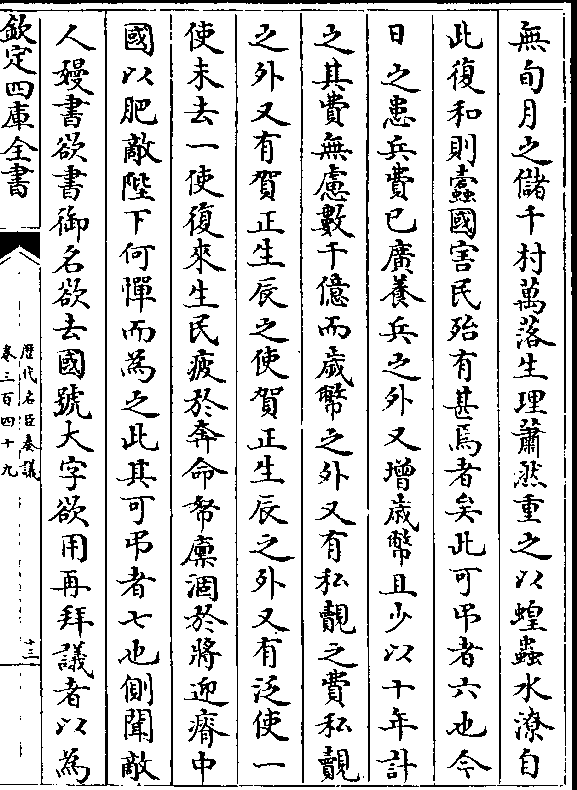 無旬月之儲千村萬落生理蕭然重之以蝗蟲水潦自
此復和則蠧國害民殆有甚焉者矣此可弔者六也今
日之患兵費已廣養兵之外又增歲幣且少以十年計
之其費無慮數千億而歲幣之外又有私覿之費私覿
之外又有賀正生辰之使賀正生辰之外又有泛使一
使未去一使復來生民疲於奔命帑廩涸於將迎瘠中
國以肥敵陛下何憚而為之此其可弔者七也側聞敵
人嫚書欲書御名欲去國號大字欲用再拜議者以為
欽定四庫全書
歷代名臣奏議
卷三百四十九
十三